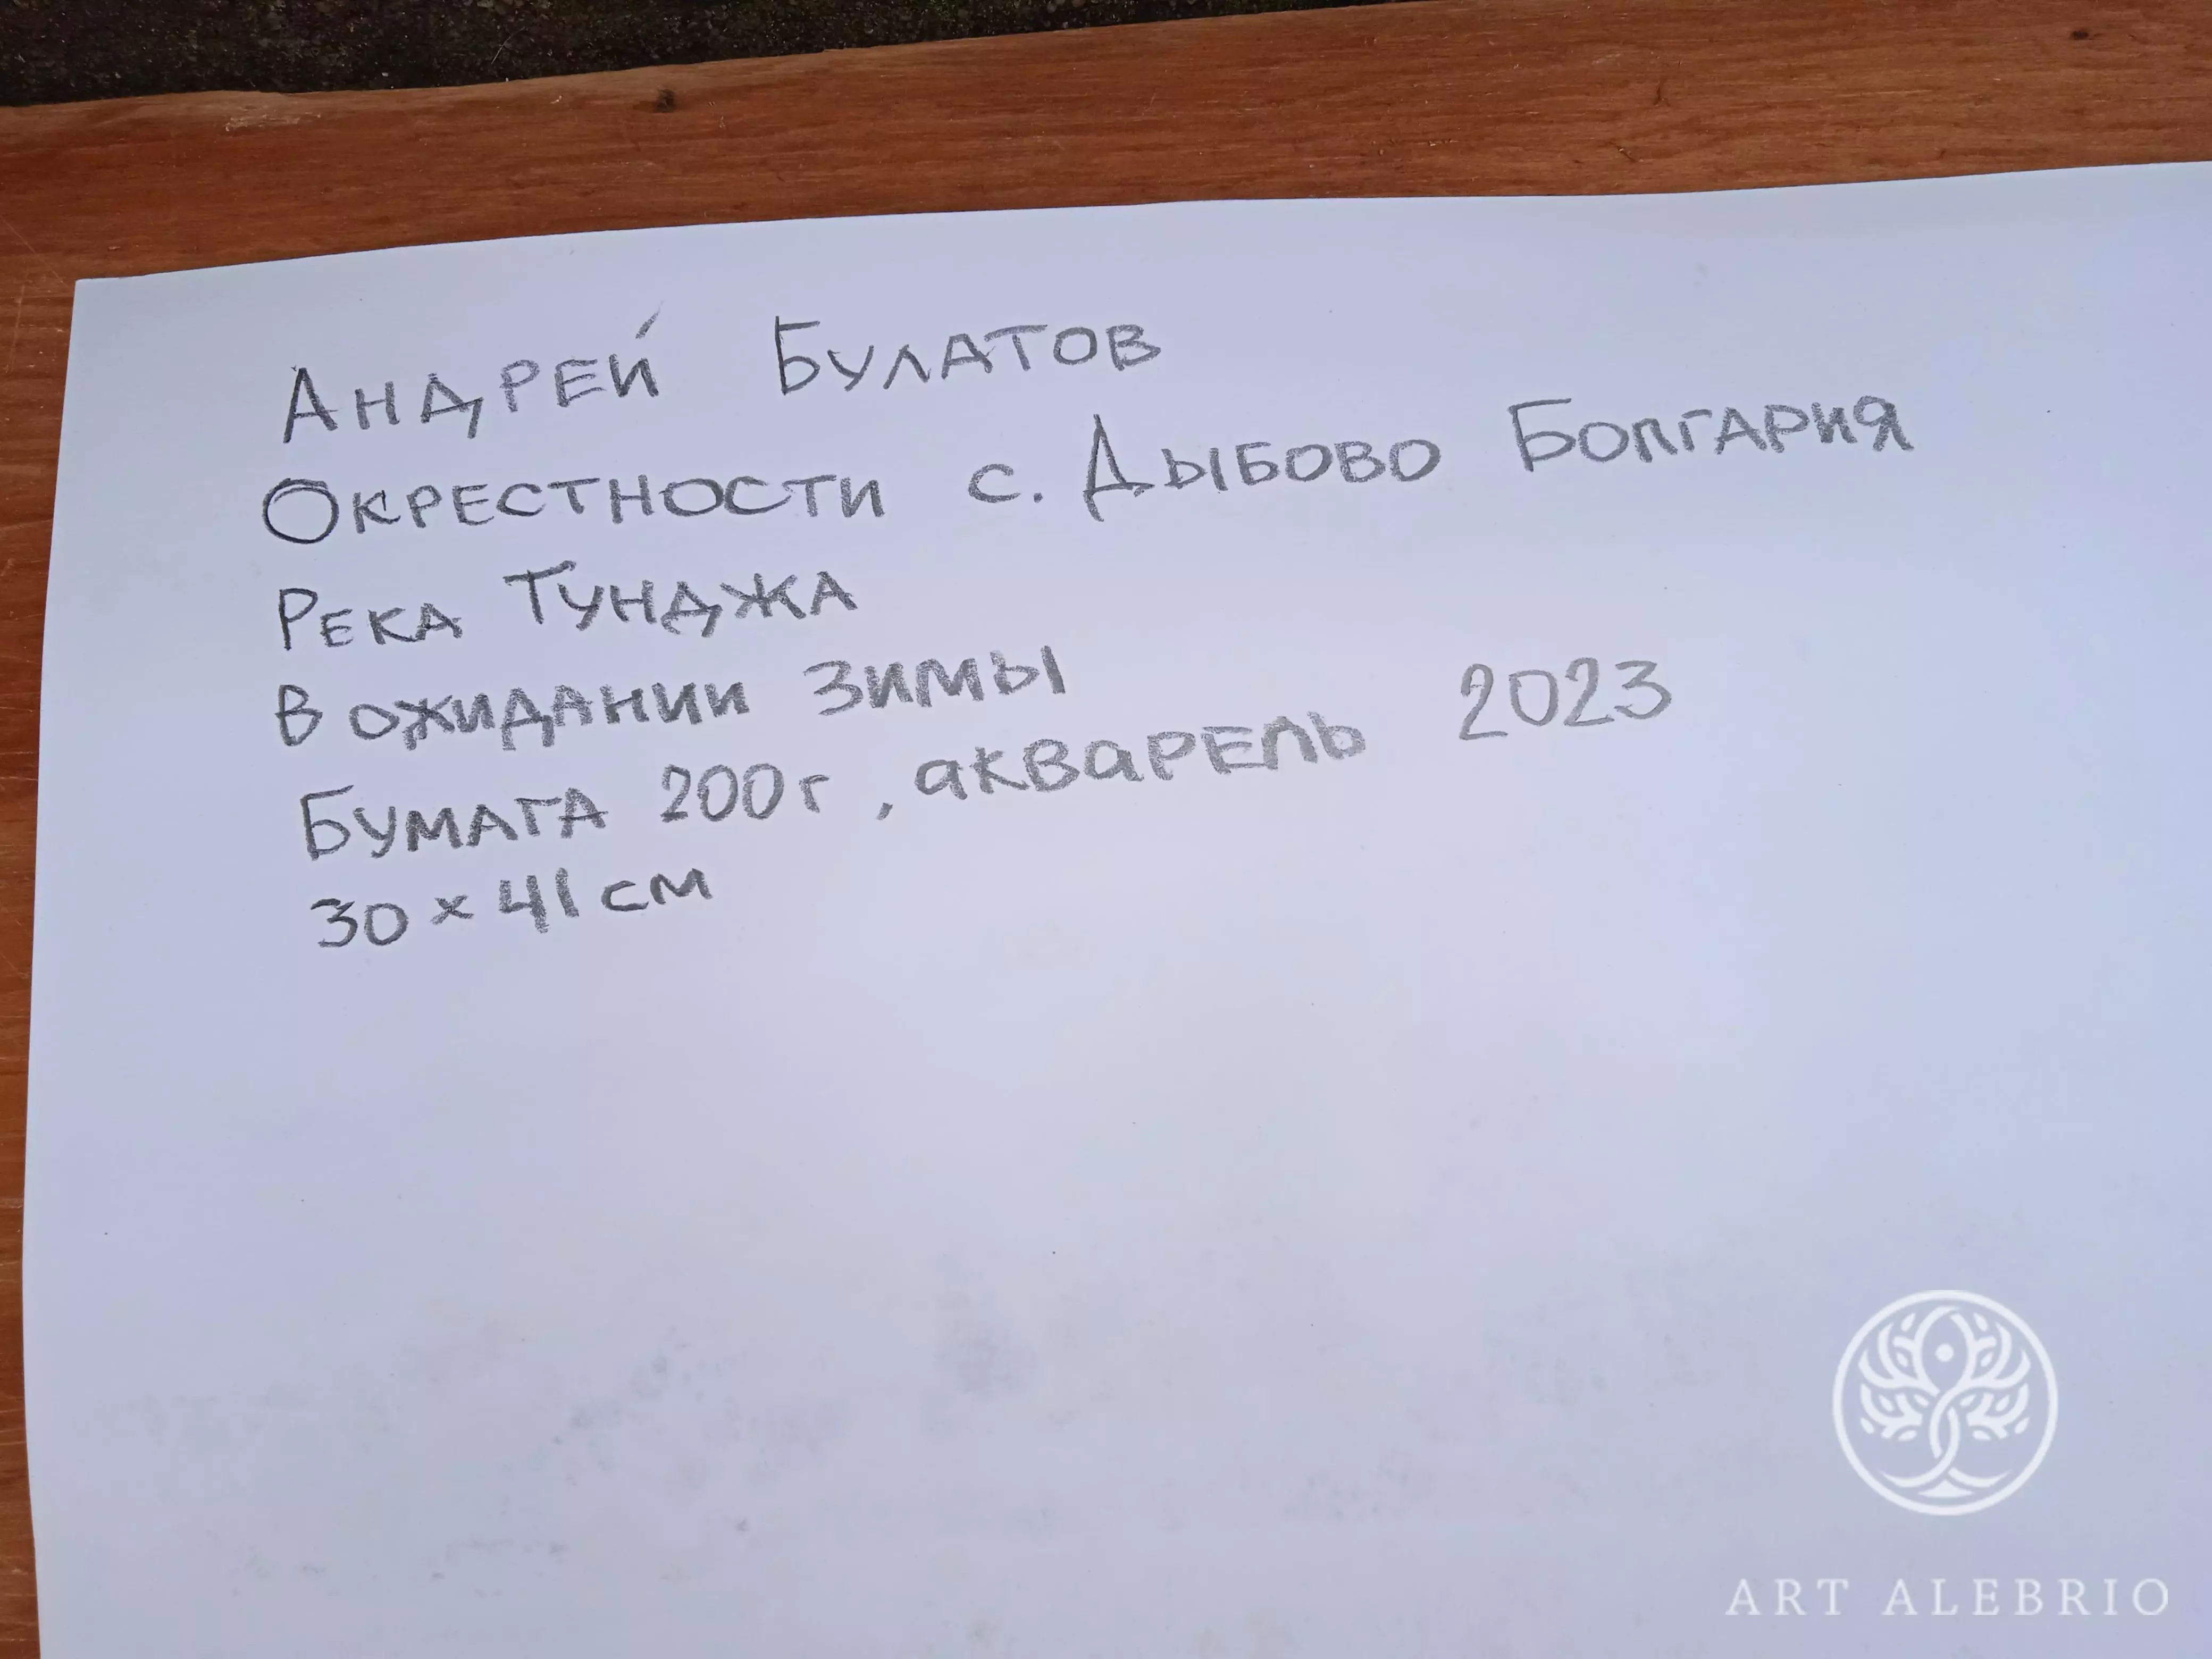 Андрей Булатов
Окрестности с. Дыбово Болгария
Река Тунджа
В ожидании зимы
Бумага 200г, акварель 2023
30 x 41 см
ART ALEBRIO